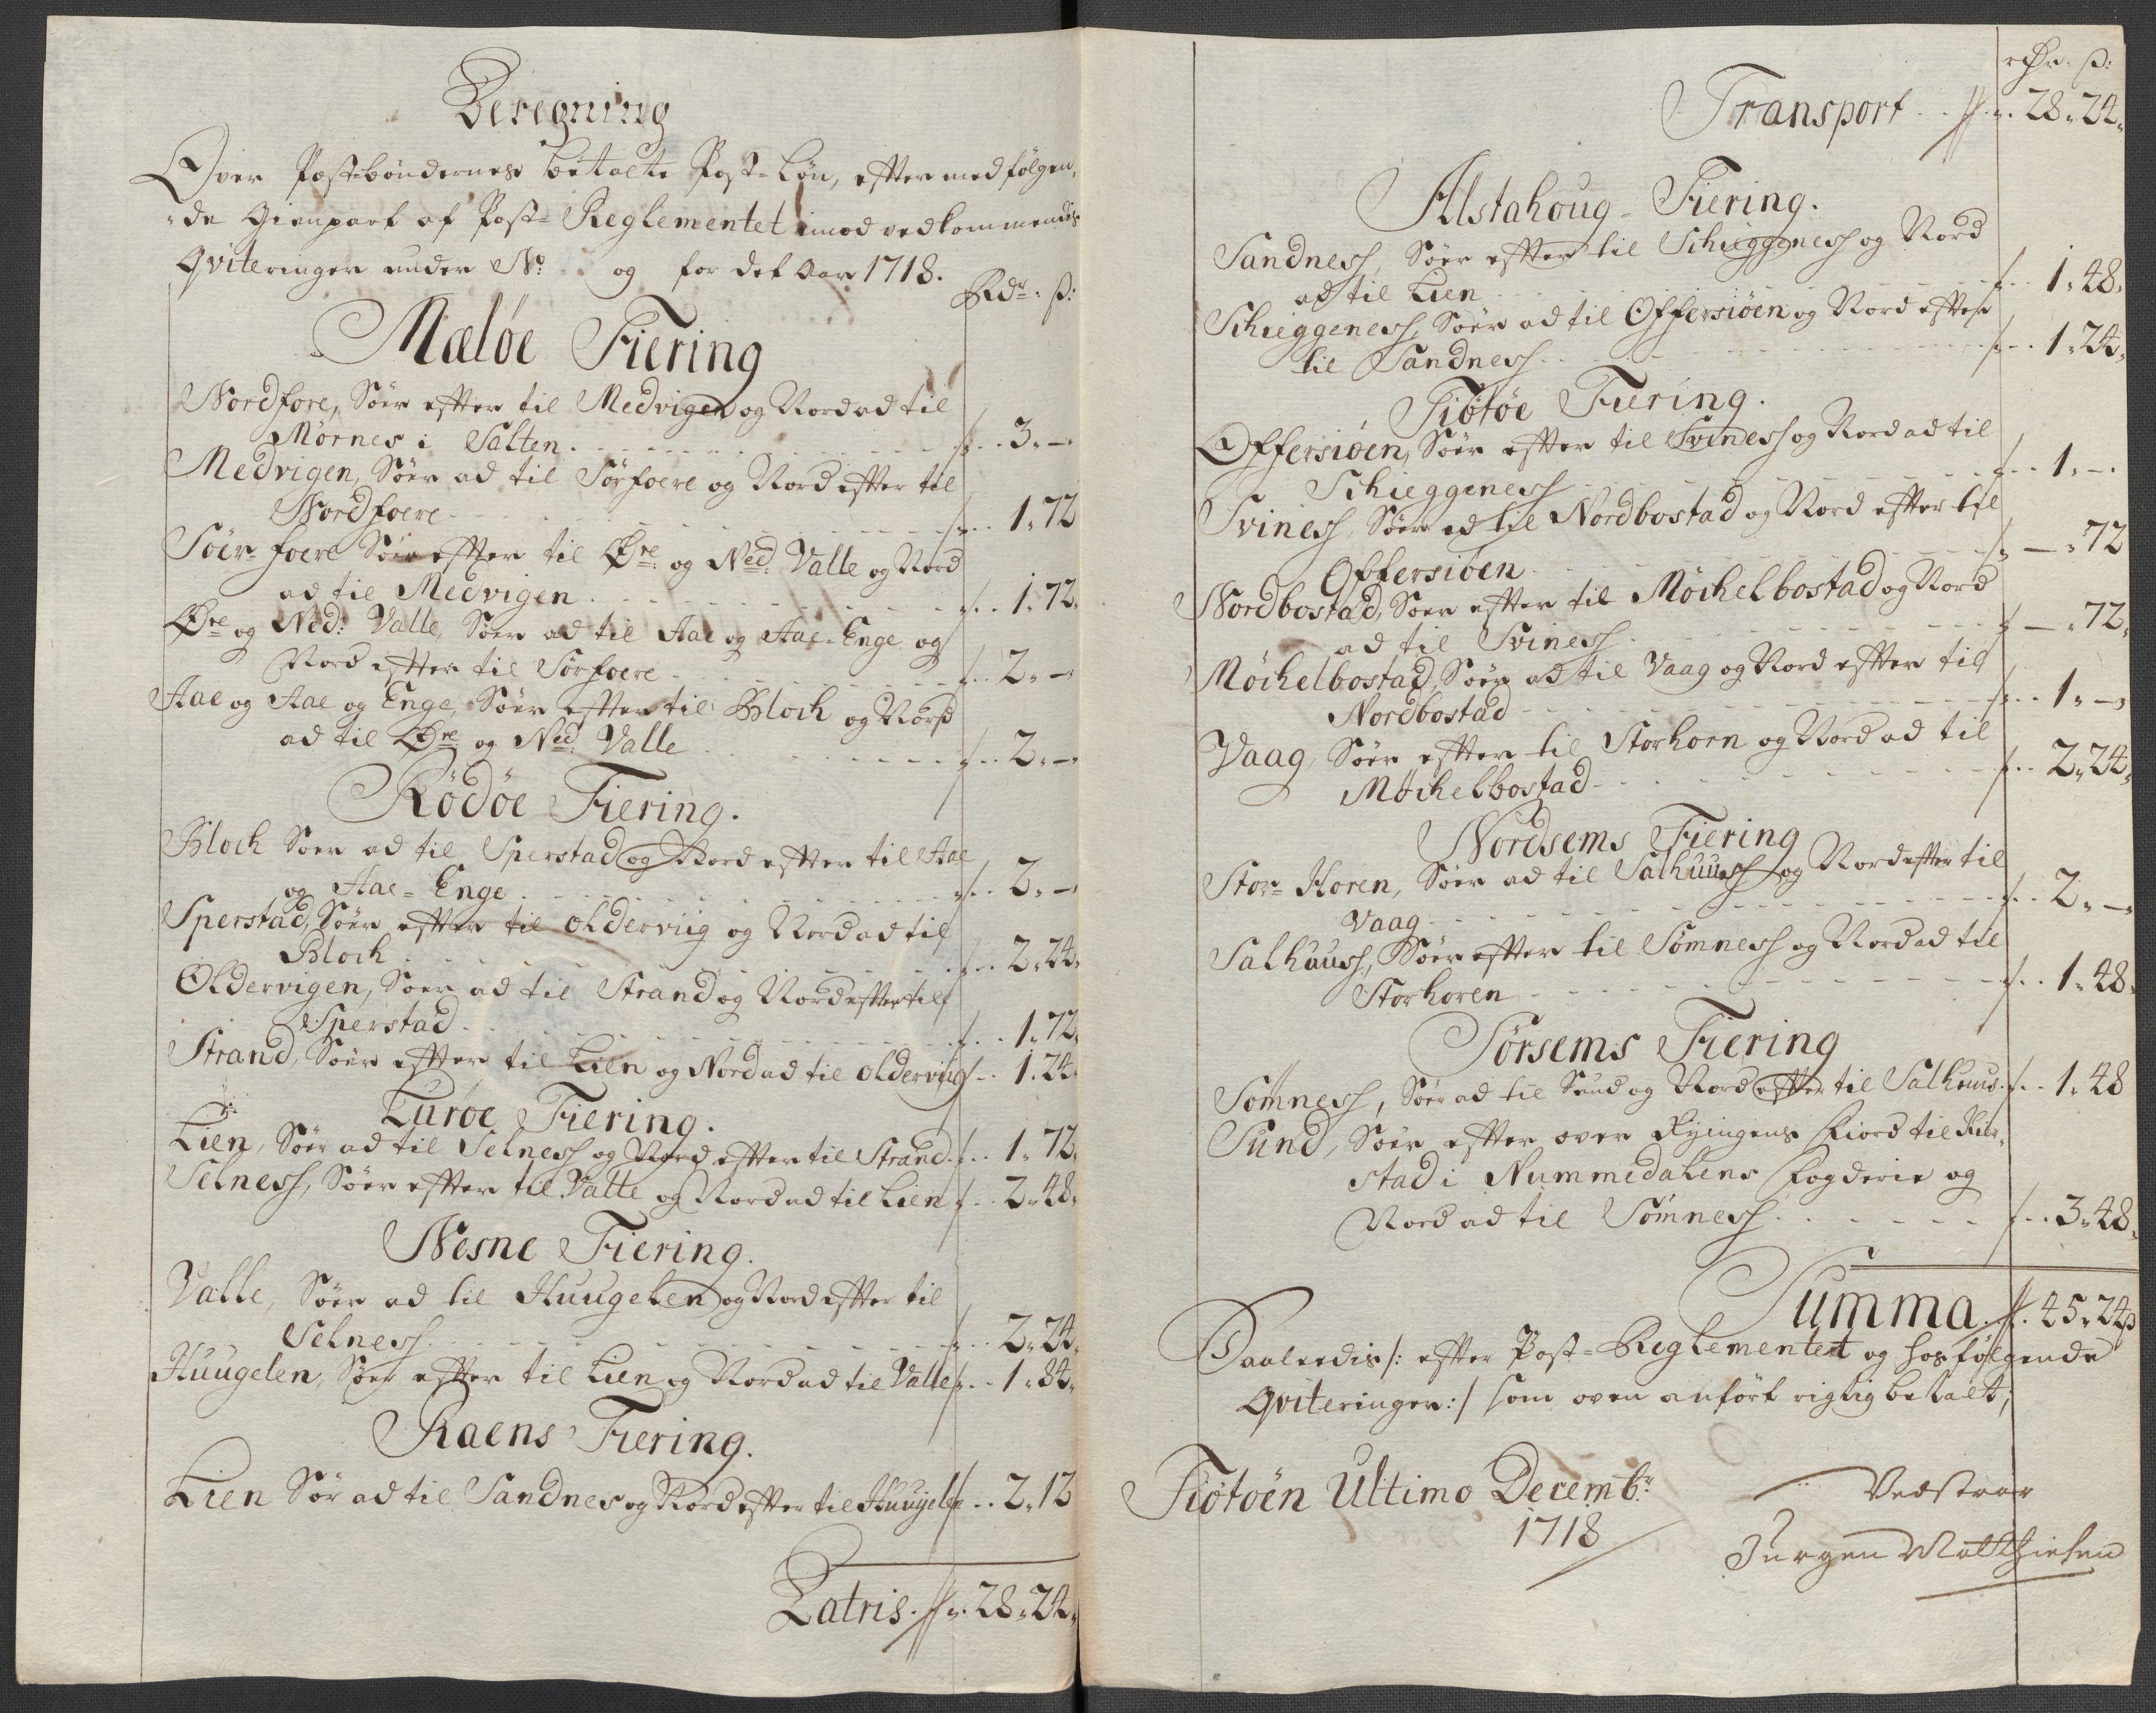 Beregning
Over Post-bøndernes betalte Post-Løn, efter medfølgen,
de Gienpart af Post-Reglementet imod vedkommendis
Qviteringer under No og for det Aar 1718.
Rdr: ß:
Meløe Fiering
Nordfore, Søer efter til Medvigen og Nord ad til
Mørnes i Salten 3 " -
Medvigen, Søer ad til Sørfoere og Nord efter til
Nordfoere 1 " 72
Söer-foere Söer efter til Øre: og Ned: Valle og Nord
ad til Medvigen 1 " 72
Øre og Ned: Valle, Söer ad til Aae og Aae-Enge og
Nord efter til Sørfoere 2 " -
Aae og Aae og Enge, Söer efter til Bloch og Nord
ad til Øre og Ned: Valle 2 " -
Rödöe Fiering.
Bloch Söer ad til Sperstad og Nord efter til Aae
og Aae-Enge 2 " -
Sperstad, Söer efter til Oldervug og Nord ad til
Bloch 2 " 24
Oldervigen, Söer ad til Strand og Nord efter til
Sperstad 1 " 72
Strand, Söer efter til Lien og Nord ad til Oldervug 1 " 24
Luröe Fiering.
Lien, Söer ad til Selness og Nord efter til Strand 1 " 72
Selness, Söer efter til Valle og Nord ad til Lien 2 " 48
Nesne Fiering.
Valle, Söer ad til Huugelen og Nord efter til
Selness 2 " 24
Huugelen, Söer efter til Lien og Nord ad til Valle 1 " 84
Raens Fiering.
Lien Sör ad til Sandnes og Nord efter til Huugele 2 " 12
Latris 28 " 24
rdr: ß:
Transport 28 " 24
Alstahoug-Fiering.
Sandness, Söer efter til Schieggeness og Nord
ad til Lien 1 " 48
Schieggeness, Söer ad til Offersiöen og Nord efter
til Sandness 1 " 24
Tiötöe Fiering.
Offersiöen, Söer efter til Sviness og Nord ad til
Schieggeness 1 " -
Sviness, Söer ad til Nordbostad og Nord efter til
Offersiöen - " 72
Nordbostad, Söer efter til Möchelbostad og Nord
ad til Sviness - " 72
Möchelbostad, Söer ad til Vaag og Nord efter til
Nordbostad 1 " -
Vaag, Söer efter til Storhorn og Nord ad til
Möchelbostad 2 " 24
Nordsems Fiering
Stor-Horen, Söer ad til Salhuus og Nord efter til
Vaag 2 " -
Salhuus, Söer efter til Sömness og Nord ad til
Storhoren 1 " 48
Sörsems Fiering
Sömness, Söer ad til Sund og Nord efter til Salhuus 1 " 48
Sund, Söer efter over Fyingens Fiord til Rier,
stad i Nummedalens Fogderie og
Nord ad til Sömness 3 " 48
Summa 45 " 24 ß
Saaledis /: efter Post-Reglementet og hosfølgende
Qviteringer :/ som oven anført rigtig betalt,
Tiötöen Ultimo Decembr
1718
Vedstaar
Jurgen Matthiesen